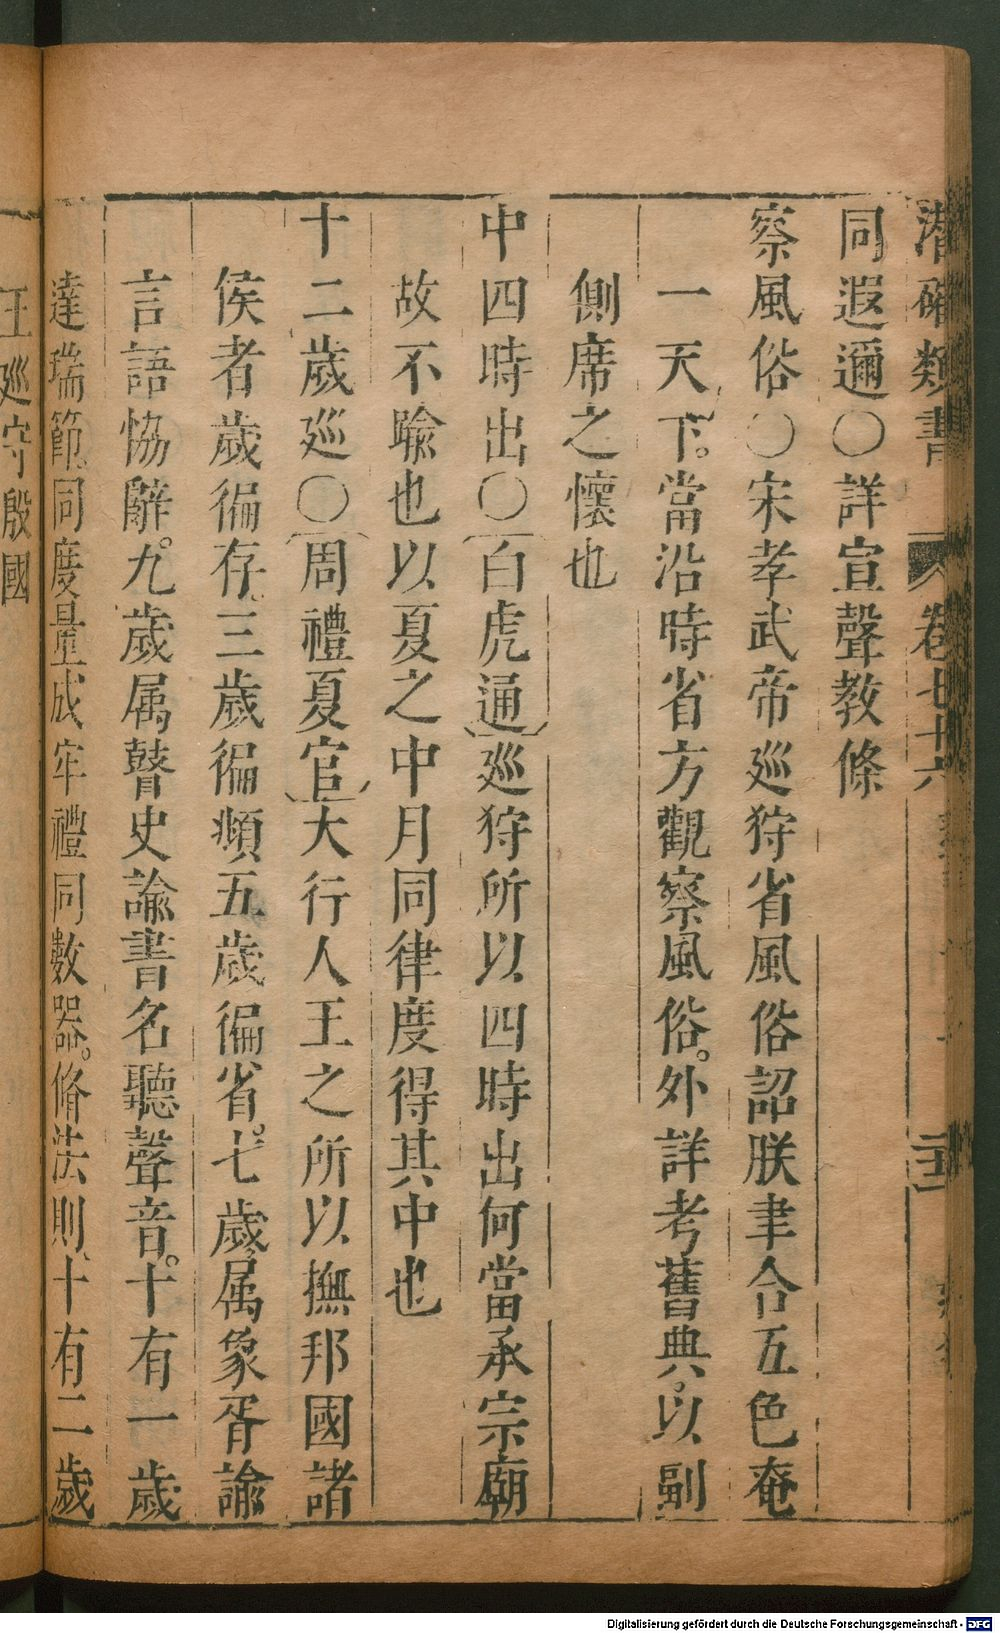 潛確類書 卷七十六
同遐邇〇詳宣聲教條
察風俗〇宋孝武帝巡狩省風俗詔朕聿合五色奄
一天下。當沿時省方觀察風俗。外詳考舊典。以副
側席之懷也
中四時出〇白虎通巡狩所以四時出何當承宗廟
故不喻也以夏之中月同律度得其中也
十二歲巡〇周禮夏官大行人王之所以撫邦國諸
侯者歲徧存。三歲徧頫五歲徧省。七歲屬象胥諭
言語恊辭。九歲属瞽史諭書名聽聲音。十有一歲
達瑞節。同度量成牢禮同數器。脩法則、十有二歲
王廵守殷國
Digitalisierung gefördert durch die Deutsche Forschungsgemeinschaft - DFG